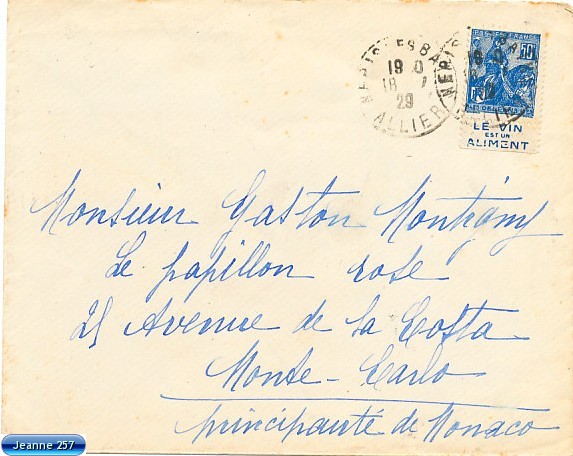 NERIS LES BAINS
19 0
18 7
29
ALLIER
POSTES FRANCE
50c
LE VIN
EST UN
ALIMENT
Monsieur Gaston Montigny
Le papillon rose
25 Avenue de la Costa
Monte-Carlo
principauté de Monaco
Jeanne 257